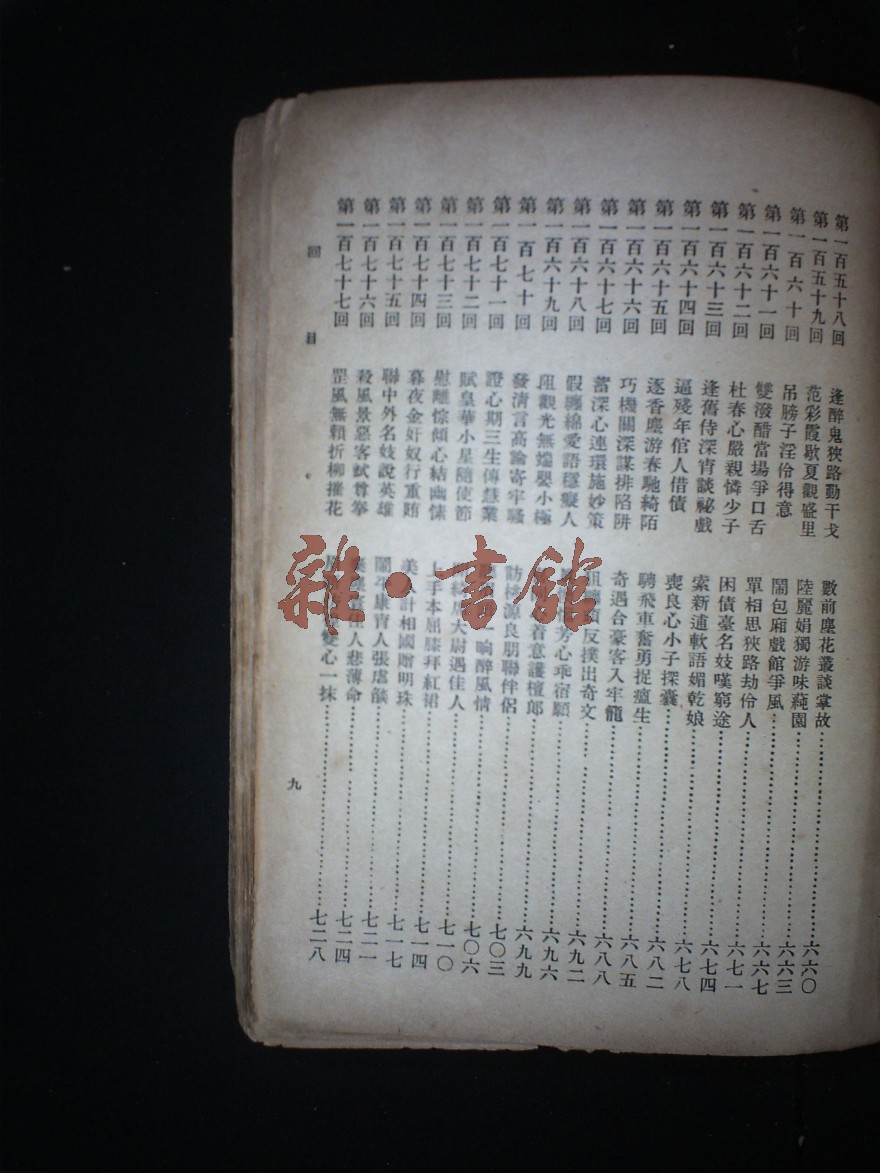 第一百五十八回 逢醉鬼狹路動干戈 數前塵花叢談掌故 六六〇
第一百五十九回 范彩霞歇夏觀盛里 陸麗娟獨游味蒓園 六六三
第一百六十回 吊膀子淫伶得意 鬧包廂戲館爭風 六六七
第一百六十一回 雙潑醋當場爭口舌 單相思狹路劫伶人 六七一
第一百六十二回 杜春心嚴親憐少子 困債臺名妓嘆窮途 六七四
第一百六十三回 逢舊侍深宵談祕戲 索新逋軟語媚乾娘 六七八
第一百六十四回 逼殘年倌人借債 喪良心小子探囊 六八二
第一百六十五回 逐香塵游春馳綺陌 騁飛車奮勇捉瘟生 六八五
第一百六十六回 巧機關深謀排陷阱 奇遇合豪客入牢籠 六八八
第一百六十七回 蓄深心連環施妙策 反撲出奇文 六九二
第一百六十八回 假纏綿愛語穩癡人 芳心乖宿願 六九六
第一百六十九回 阻觀光無端嬰小極 着意護檀郎 六九九
第一百七十回 發清言高論寄牢騷 訪桃源良朋聯伴侶 七〇三
第一百七十一回 證心期三生傳慧業 一晌醉風情 七〇六
第一百七十二回 賦皇華小星隨使節 大尉遇佳人 七一〇
第一百七十三回 慰離悰傾心結幽愫 上手本屈膝拜紅裙 七一四
第一百七十四回 暮夜金奸奴行重賄 美人計相國贈明珠 七一七
第一百七十五回 聯中外名妓說英雄 鬧平康宵人張虐燄 七二一
第一百七十六回 殺風景惡客試尊拳 人悲薄命 七二四
第一百七十七回 罡風無賴折柳摧花 雙心一抹 七二八
回目
九
雜·書館